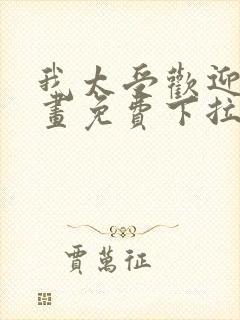 我太受歡迎
畫免費下拉
賈萬征